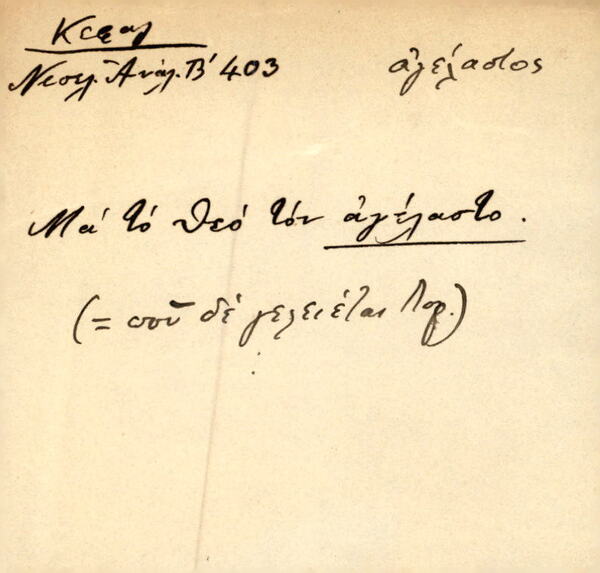 Κεφαλ
Νεοελ. Ἀνάλ. Β' 403
ἀγέλαστος
Μά τό θεό τόν ἀγέλαστο.
(= ποῦ δέ γελειέται